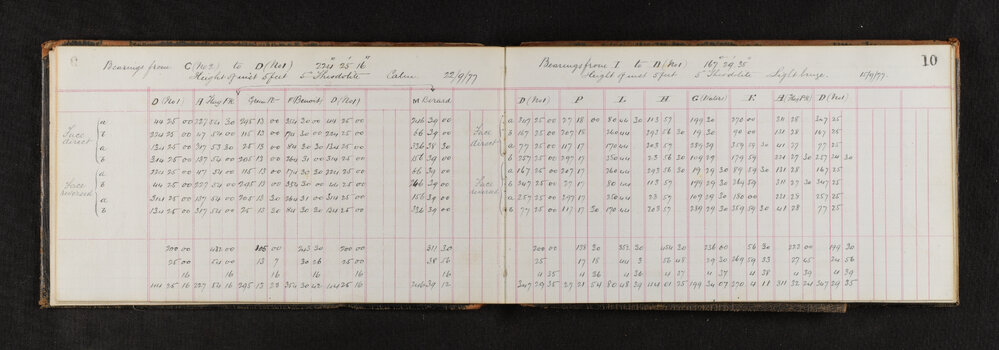 Bearings from C (No 2) to D (No 1) 224° 25' 16"
Height of inst 5 feet 5" Theodolite Calm 22/9/77
D (No 1) A Flag P R F Benoit D (No 1) M Berard
Face direct
a 44 25 00 227 54 30 295 13 00 354 30 00 44 25 00 246 39 00
b 224 25 00 47 54 00 115 13 00 174 30 00 224 25 00 66 39 00
a 134 25 00 317 53 30 25 13 00 84 30 30 134 25 00 336 38 30
b 314 25 00 137 54 00 205 13 00 264 31 00 314 25 00 156 39 00
Face reversed
a 224 25 00 47 54 00 115 13 00 174 30 30 224 25 00 66 39 00
b 44 25 00 227 54 00 295 13 00 354 30 00 44 25 00 246 39 00
a 314 25 00 137 54 00 205 13 30 264 31 00 314 25 00 156 39 00
b 134 25 00 317 54 00 25 13 30 84 30 30 134 25 00 336 39 00
200 00 432 00 105 00 243 30 200 00 311 30
25 00 54 00 13 7 30 26 25 00 38 56
16 16 16 16 16 16
44 25 16 227 54 16 295 13 23 354 30 42 44 25 16 246 39 12
10
Bearings from I to D (No 1) 167° 29' 35"
Height of inst 5 feet 5" Theodolite Light breeze 15/9/77
D (No 1) P L H G (Water) F A (Flag P R) D (No 1)
Face direct
a 347 25 00 27 18 00 80 44 30 113 57 199 30 270 00 311 28 347 25
b 167 25 00 207 18 260 44 293 56 30 19 30 90 00 131 28 167 25
a 77 25 00 117 17 170 44 203 57 289 29 359 59 30 41 27 77 25
b 257 25 00 297 17 350 44 23 56 30 109 29 179 59 221 27 30 257 24 30
Face reversed
a 167 25 00 207 17 260 44 293 56 30 19 29 30 89 59 30 131 28 167 25
b 347 25 00 27 17 80 44 113 57 199 29 30 269 59 311 27 30 347 25
a 257 25 00 297 17 350 44 23 57 109 29 30 180 00 221 28 257 25
b 77 25 00 117 17 30 170 44 203 57 289 29 30 359 59 30 41 28 77 25
200 00 138 30 352 30 454 30 236 00 56 30 222 00 199 30
25 17 18 44 3 56 48 29 30 269 59 33 27 45 24 56
4 35 4 36 4 36 4 37 4 37 4 38 4 39 4 39
347 29 35 27 21 54 80 48 39 114 01 25 199 34 07 270 4 11 311 32 24 347 29 35